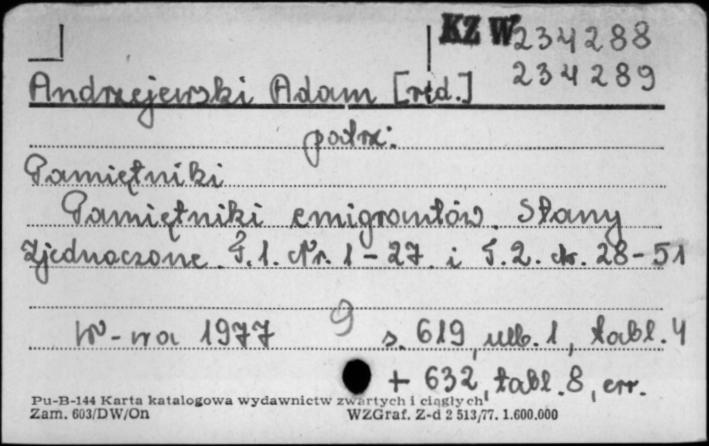 KZ W 234288
234289
Andrzejewski Adam [red.]
patrz:
Pamiętniki
Pamiętniki emigrantów. Stany
Zjednoczone. T.1. Nr. 1-27. i T.2. Nr. 28-51
W-wa 1977 9 s. 619, nlb. 1, tabl. 4
+ 632, tabl. 8, err.
Pu-B-144 Karta katalogowa wydawnictw zwartych i ciągłych
Zam. 603/DW/On WZGraf. Z-d 2 513/77. 1.600.000